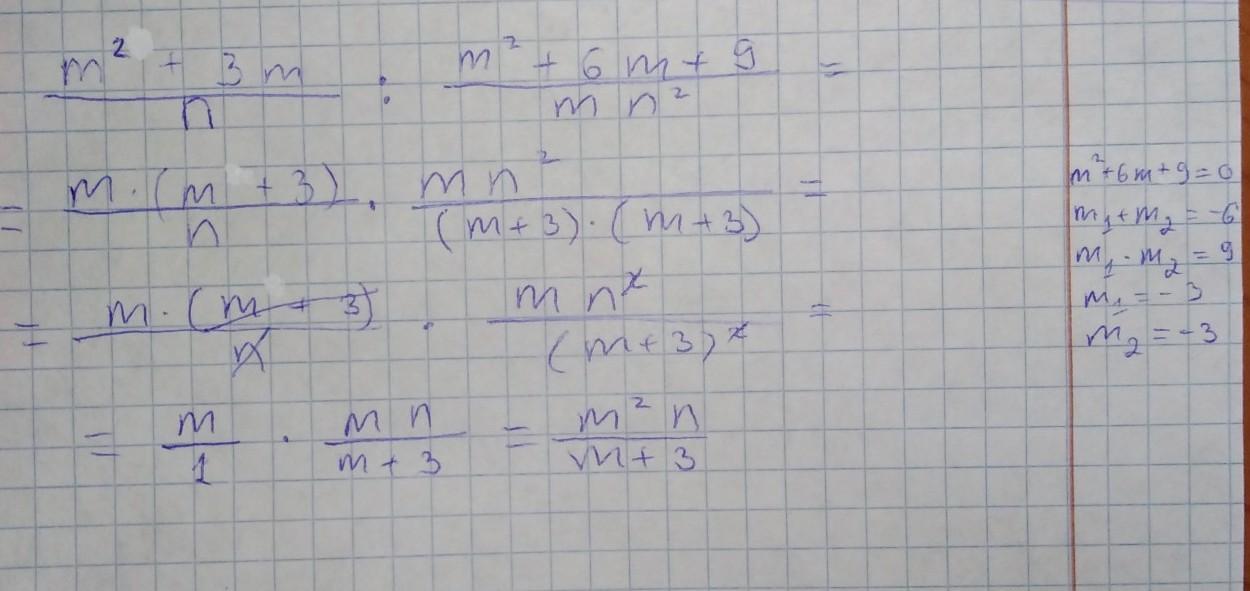 (m² + 3m)/n : (m² + 6m + 9)/(mn²) =
= (m·(m + 3))/n · (mn²)/((m+3)·(m+3)) =
= (m·(m + 3))/n · (mn²)/((m+3)²) =
= m/1 · (mn)/(m+3) = (m²n)/(m+3)
m²+6m+9=0
m₁+m₂=-6
m₁·m₂=9
m₁=-3
m₂=-3